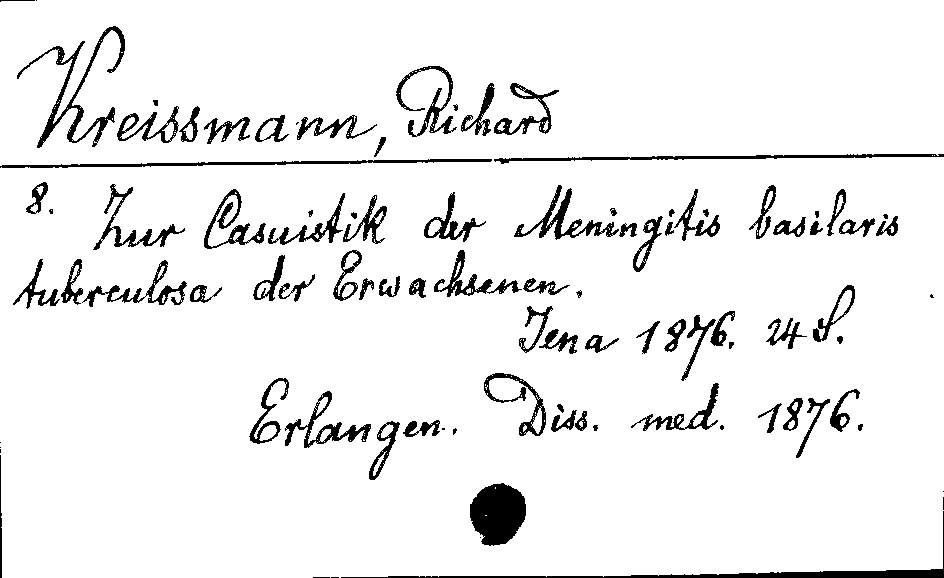 Kreissmann, Richard
8. Zur Casuistik der Meningitis basilaris
tuberculosa der Erwachsenen.
Jena 1876. 24 S.
Erlangen. Diss. med. 1876.